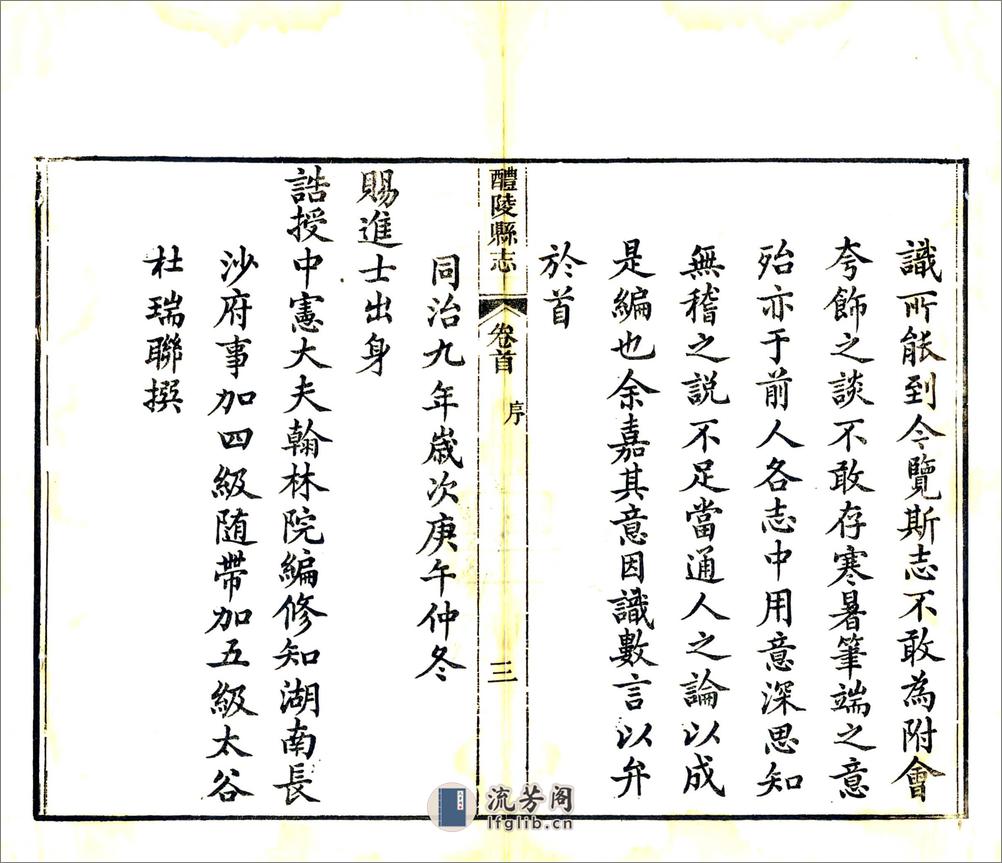 識所能到今覽斯志不敢為附會
夸飾之談不敢存寒暑筆端之意
殆亦于前人各志中用意深思知
無稽之説不足當通人之論以成
是編也余嘉其意因識數言以弁
於首
醴陵縣志
卷首
序
三
同治九年歲次庚午仲冬
賜進士出身
誥授中憲大夫翰林院編修知湖南長
沙府事加四級随帶加五級太谷
杜瑞聯撰
流芳阁
lfglib.cn